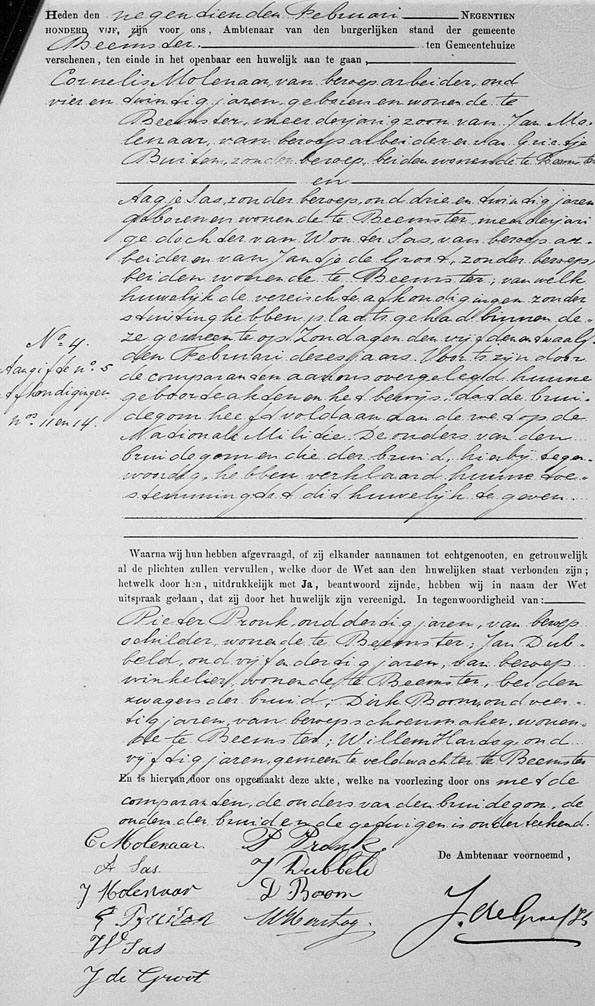 Heden den negentienden Februari NEGENTIEN
HONDERD VIJF, zijn voor ons, Ambtenaar van den burgerlijken stand der gemeente
Beemster. ten Gemeentehuize
verschenen, ten einde in het openbaar een huwelijk aan te gaan,
Cornelis Molenaar, van beroep arbeider, oud
vier en twintig jaren, geboren en wonende te
Beemster, meerderjarig zoon van Jan Mo-
lenaar, van beroep arbeider en van Grietje
Buiten, zonder beroep, beiden wonende te Beemster
en
Aagje Sas, zonder beroep, oud drie en twintig jaren
geboren en wonende te Beemster, meerderjari
ge dochter van Wouter Sas, van beroep ar-
beider en van Jantje de Groot, zonder beroep,
beiden wonende te Beemster; van welk
huwelijk de vereischte afkondigingen zonder
stuiting hebben plaats gehad binnen de-
ze gemeente op Zondagen den vijfden en twaalf
den Februari dezes jaars. Voorts zijn door
de comparanten aan ons overgelegd hunne
geboorteakten en het bewijs, dat de brui-
degom heeft voldaan aan de wet op de
Nationale Militie. De ouders van den
bruidegom en die der bruid, hierbij tegen-
woordig, hebben verklaard hunne toe-
stemming tot dit huwelijk te geven.
No. 4.
Aangifte no. 5
Afkondigingen
nos. 11 en 14.
Waarna wij hun hebben afgevraagd, of zij elkander aannamen tot echtgenooten, en getrouwelijk
al de plichten zullen vervullen, welke door de Wet aan den huwelijken staat verbonden zijn;
hetwelk door hen, uitdrukkelijk met Ja, beantwoord zijnde, hebben wij in naam der Wet
uitspraak gedaan, dat zij door het huwelijk zijn vereenigd. In tegenwoordigheid van:
Pieter Pronk, oud dertig jaren, van beroep
schilder, wonende te Beemster; Jan Dub-
beld, oud vijf en dertig jaren, van beroep
winkelier, wonende te Beemster, beiden
zwagers der bruid; Dirk Boom, oud veer-
tig jaren, van beroep schoenmaker, wonen-
de te Beemster; Willem Hartog, oud
vijftig jaren, gemeente veldwachter te Beemster
En is hiervan door ons opgemaakt deze akte, welke na voorlezing door ons met de
comparanten, de ouders van den bruidegom, de
ouders der bruid en de getuigen is onderteekend.
C Molenaar. P Pronk.
A Sas J Dubbeld
J Molenaar D. Boom
G Buiten W Hartog.
W Sas
J de Groot
De Ambtenaar voornoemd,
J. de Graaff